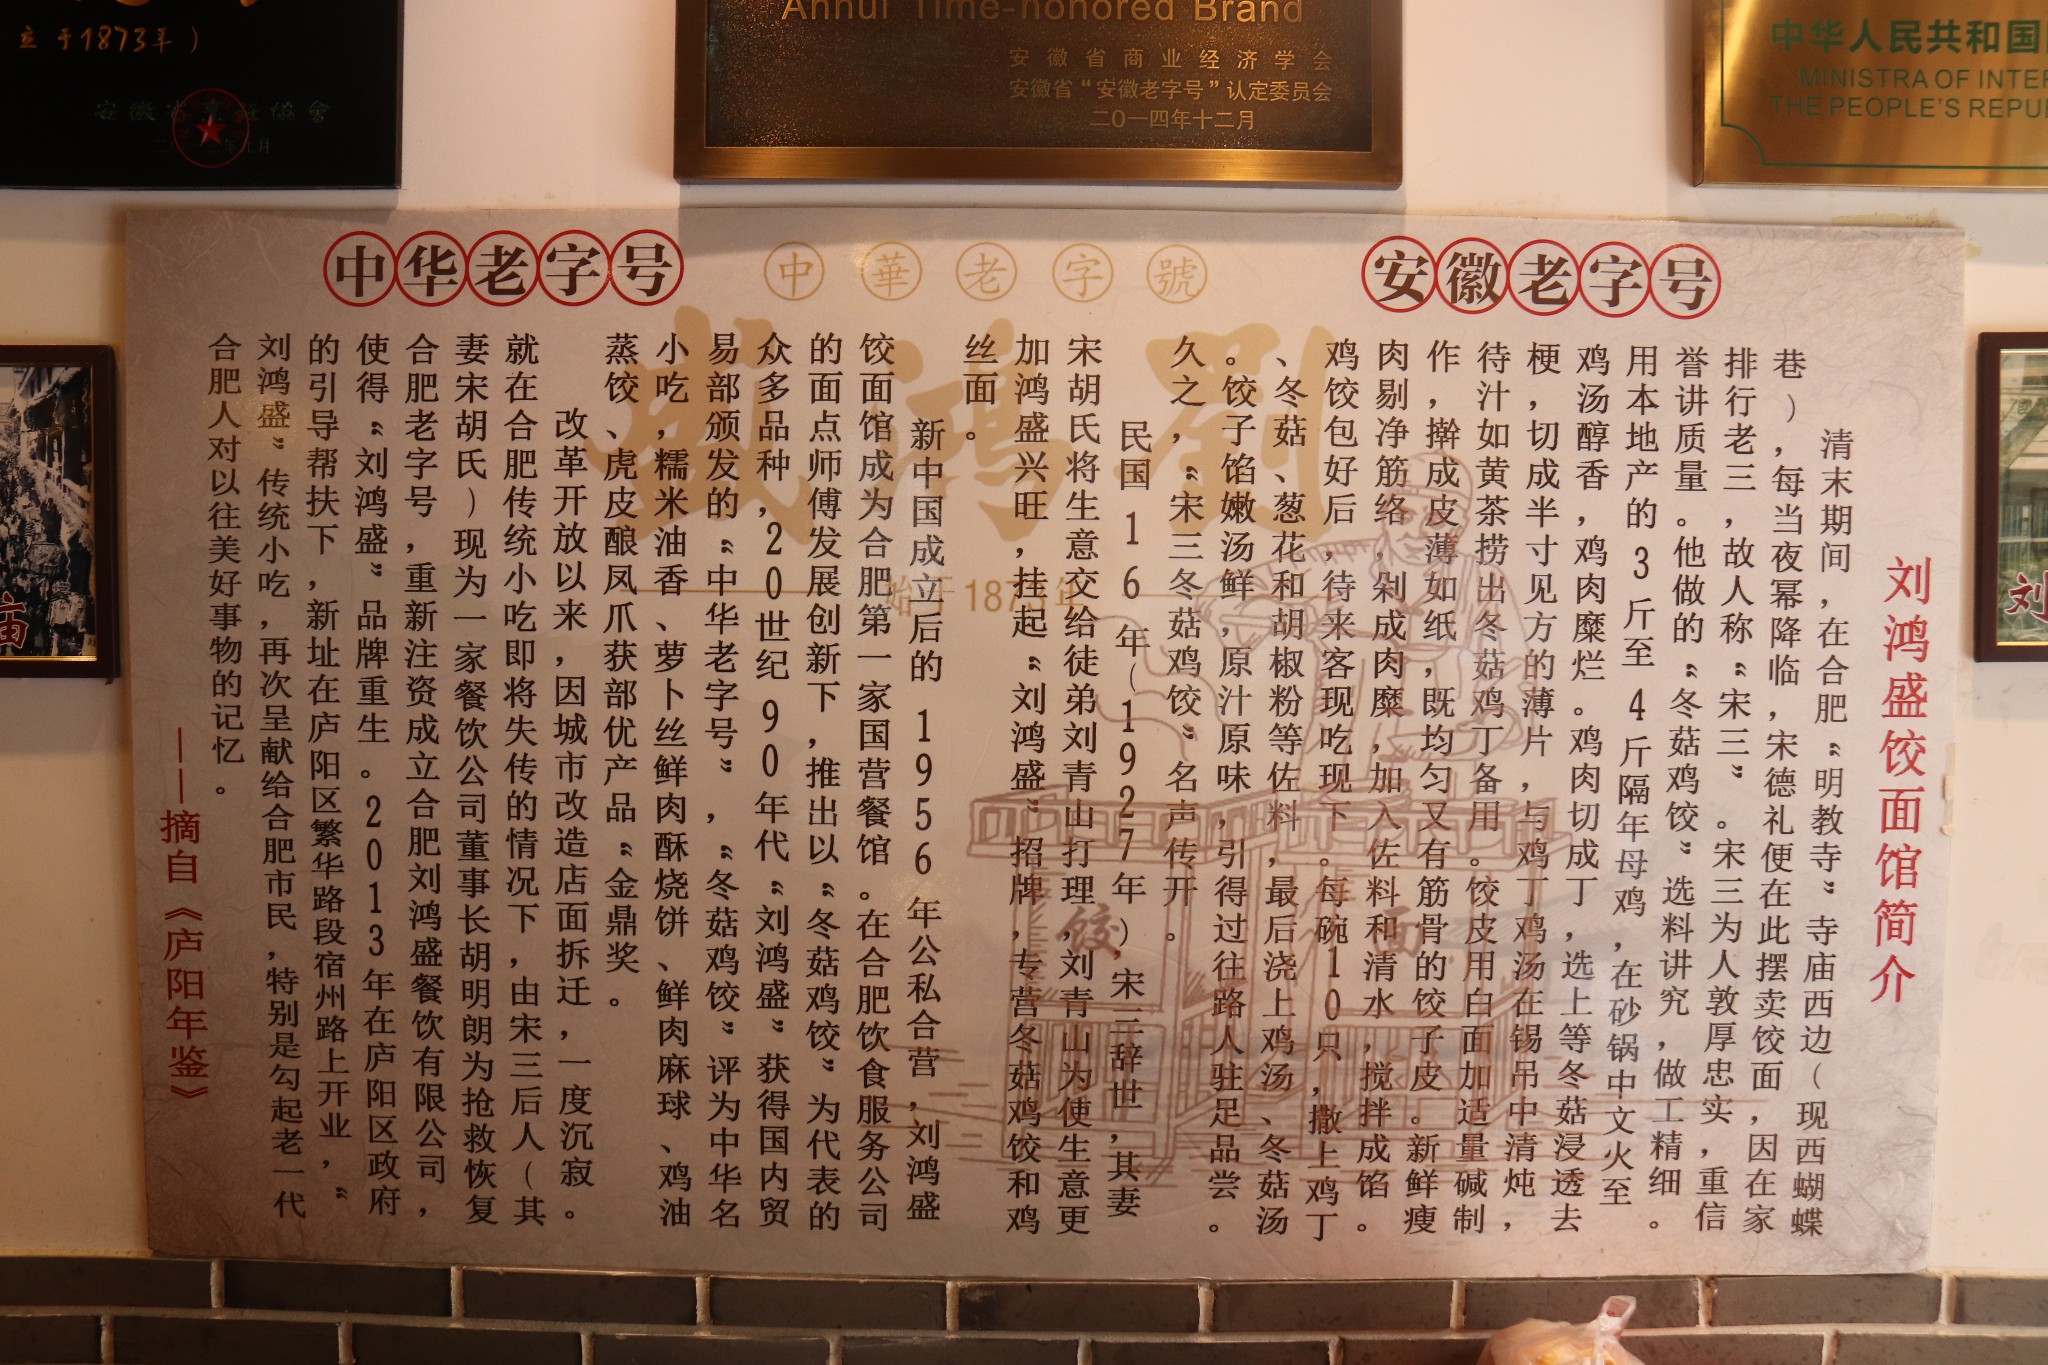 立于1873年）
安徽省烹饪協會
Anhui Time-honored Brand
安徽省商业经济学会
安徽省“安徽老字号”认定委员会
二〇一四年十二月
中华人民共和国
MINISTRA OF INTER
THE PEOPLE'S REPU
中华老字号
中華老字號
安徽老字号
劉鴻盛
始于1873年
饺 面
刘鸿盛饺面馆简介
清末期间，在合肥“明教寺”寺庙西边（现西蝴蝶
巷），每当夜幂降临，宋德礼便在此摆卖饺面，因在家
排行老三，故人称“宋三”。宋三为人敦厚忠实，重信
誉讲质量。他做的“冬菇鸡饺”选料讲究，做工精细。
用本地产的3斤至4斤隔年母鸡，在砂锅中文火至
鸡汤醇香，鸡肉糜烂。鸡肉切成丁，选上等冬菇浸透去
梗，切成半寸见方的薄片，与鸡丁鸡汤在锡吊中清炖，
待汁如黄茶捞出冬菇鸡丁备用。饺皮用白面加适量碱制
作，擀成皮薄如纸，既均匀又有筋骨的饺子皮。新鲜瘦
肉剔净筋络，剁成肉糜，加入佐料和清水，搅拌成馅。
鸡饺包好后，待来客现吃现下。每碗10只，撒上鸡丁
、冬菇、葱花和胡椒粉等佐料，最后浇上鸡汤、冬菇汤
。饺子馅嫩汤鲜，原汁原味，引得过往路人驻足品尝。
久之，“宋三冬菇鸡饺”名声传开。
民国16年（1927年），宋三辞世，其妻
宋胡氏将生意交给徒弟刘青山打理，刘青山为使生意更
加鸿盛兴旺，挂起“刘鸿盛”招牌，专营冬菇鸡饺和鸡
丝面。
新中国成立后的1956年公私合营，刘鸿盛
饺面馆成为合肥第一家国营餐馆。在合肥饮食服务公司
的面点师傅发展创新下，推出以“冬菇鸡饺”为代表的
众多品种，20世纪90年代“刘鸿盛”获得国内贸
易部颁发的“中华老字号”，“冬菇鸡饺”评为中华名
小吃，糯米油香、萝卜丝鲜肉酥烧饼、鲜肉麻球、鸡油
蒸饺、虎皮酿凤爪获部优产品“金鼎奖。
改革开放以来，因城市改造店面拆迁，一度沉寂。
就在合肥传统小吃即将失传的情况下，由宋三后人（其
妻宋胡氏）现为一家餐饮公司董事长胡明朗为抢救恢复
合肥老字号，重新注资成立合肥刘鸿盛餐饮有限公司，
使得“刘鸿盛”品牌重生。2013年在庐阳区政府
的引导帮扶下，新址在庐阳区繁华路段宿州路上开业，“
刘鸿盛”传统小吃，再次呈献给合肥市民，特别是勾起老一代
合肥人对以往美好事物的记忆。
——摘自《庐阳年鉴》
庙
刘